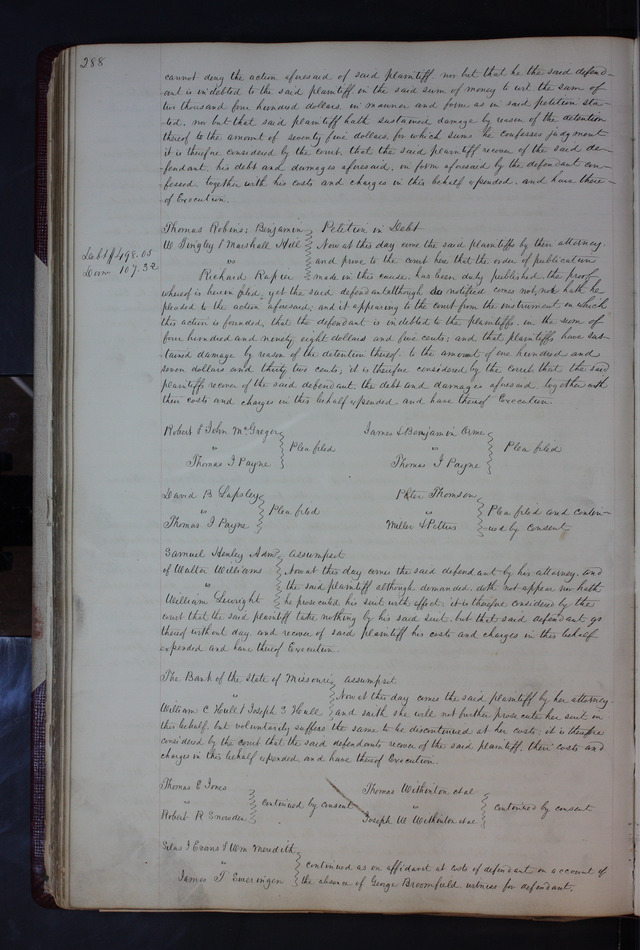 288
cannot deny the action aforesaid of said plaintiff nor but that he the said defend-
ant is indebted to the said plaintiff in the said sum of money to wit the sum of
two thousand four hundred dollars, in manner and form as in said petition sta-
ted, nor but that said plaintiff hath sustained damage by reason of the detention
thereof to the amount of seventy five dollars, for which sums he confesses judgment
it is therefore considered by the court, that the said plaintiff recover of the said de-
fendant, his debt and damages aforesaid, in form aforesaid by the defendant con-
fessed together with his costs and charges in this behalf expended. and have there-
of Execution.
Thomas Robins, Benjamin Petition in Debt
W. Tingley & Marshall Hill Now at this day come the said plaintiffs by their attorney.
Debt $498.05
vs and prove to the court here that the order of publication
Dam 107.32
Richard Rapier made in this cause, has been duly published, the proof
whereof is herein filed, yet the said defendant although so notified comes not, nor hath he
pleaded to the action aforesaid, and it appearing to the court from the instrument on which
this action is founded, that the defendant is indebted to the plaintiffs, in the sum of
four hundred and ninety eight dollars and five cents; and that plaintiffs have sus-
tained damage by reason of the detention thereof to the amount of one hundred and
seven dollars and thirty two cents, it is therefore considered by the court that the said
plaintiffs recover of the said defendant the debt and damages aforesaid together with
their costs and charges in this behalf expended and have thereof Execution.
Robert & John McGregor
vs Plea filed
Thomas J Payne
James & Benjamin Orme
vs Plea filed
Thomas J Payne
David B Lapsley
vs Plea filed
Thomas J Payne
Peter Thomson
vs Plea filed and contin-
Miller & Petters ued by consent
Samuel Henley Adm. Assumpsit
of Walter Williams Now at this day comes the said defendant by his attorney. and
vs the said plaintiff although demanded, doth not appear nor hath
William he prosecuted his suit with effect, it is therefore considered by the
court that the said plaintiff take nothing by his said suit, but that said defendant go
thereof without day and recover of said plaintiff his costs and charges in this behalf
expended and have thereof Execution.
The Bank of the State of Missouri Assumpsit
vs Now at this day comes the said plaintiff by her attorney.
William C Hull & Joseph S Hull and saith she will not further prosecute her suit in
this behalf, but voluntarily suffers the same to be discontinued at her costs; it is therefore
considered by the court that the said defendants recover of the said plaintiff, their costs and
charges in this behalf expended, and have thereof Execution.
Thomas E Jones
vs continued by consent
Robert R Snowden
Thomas Withinton et al
vs continued by consent
Joseph W Withinton et al
Silas J Evans & Wm Meredith
vs continued as on affidavit at costs of defendant on account of
James T Sweringen the absence of George Broomfield witness for defendant.